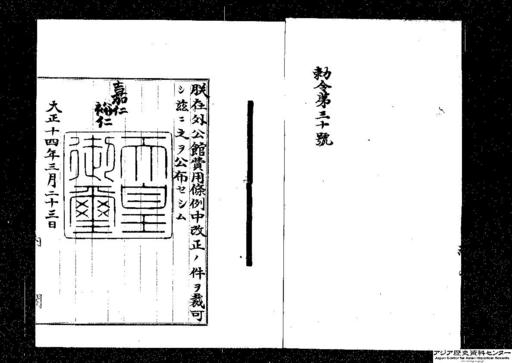 勅令第三十號
朕在外公館費用條例中改正ノ件ヲ裁可
シ茲ニ之ヲ公布セシム
嘉仁
裕仁
天皇御璽
大正十四年三月二十三日
内閣
アジア歴史資料センター
Japan Center for Asian Historical Records